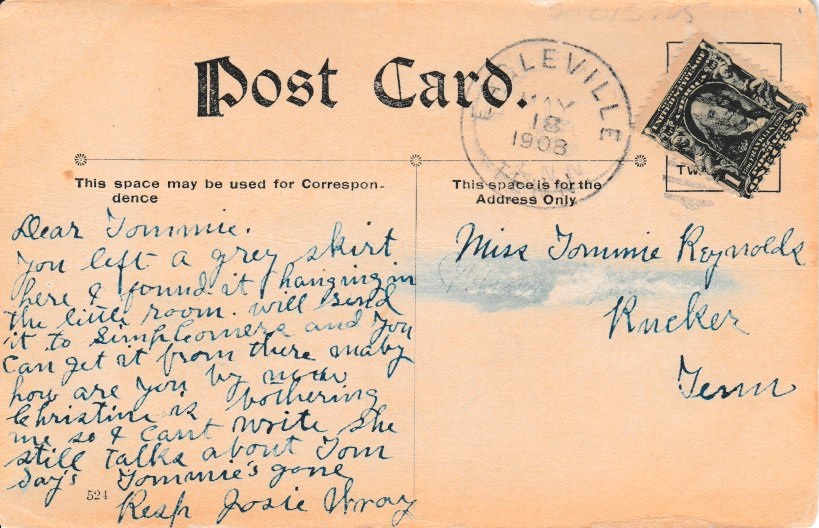 Post Card.
EAGLEVILLE
MAY
18
1908
TENN.
This space may be used for Correspon-
dence
This space is for the
Address Only
TW
Dear Tommie.
You left a grey skirt
here I found it hanging in
the little room. will send
it to Simpleomera and you
can get it from there maby
how are you by now
Christine is bothering
me so I cant write she
still talks about Tom
Say's Tommie's gone
Resp Josie Wray
524
Miss Tommie Reynolds
Rucker
Tenn